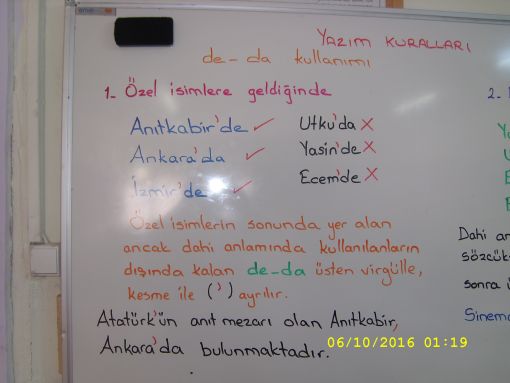 YAZIM KURALLARI
de-da kullanımı
1- Özel isimlere geldiğinde
2-
Anıtkabir'de ✓ Utku'da X
Ankara'da ✓ Yasin'de X
İzmir'de ✓ Ecem'de X
Özel isimlerin sonunda yer alan
ancak dahi anlamında kullanılanların
dışında kalan de-da üsten virgülle,
kesme ile (') ayrılır.
Atatürk'ün anıt mezarı olan Anıtkabir,
Ankara'da bulunmaktadır.
Dahi an
sözcük
sonra ü
Sinema
06/10/2016 01:19